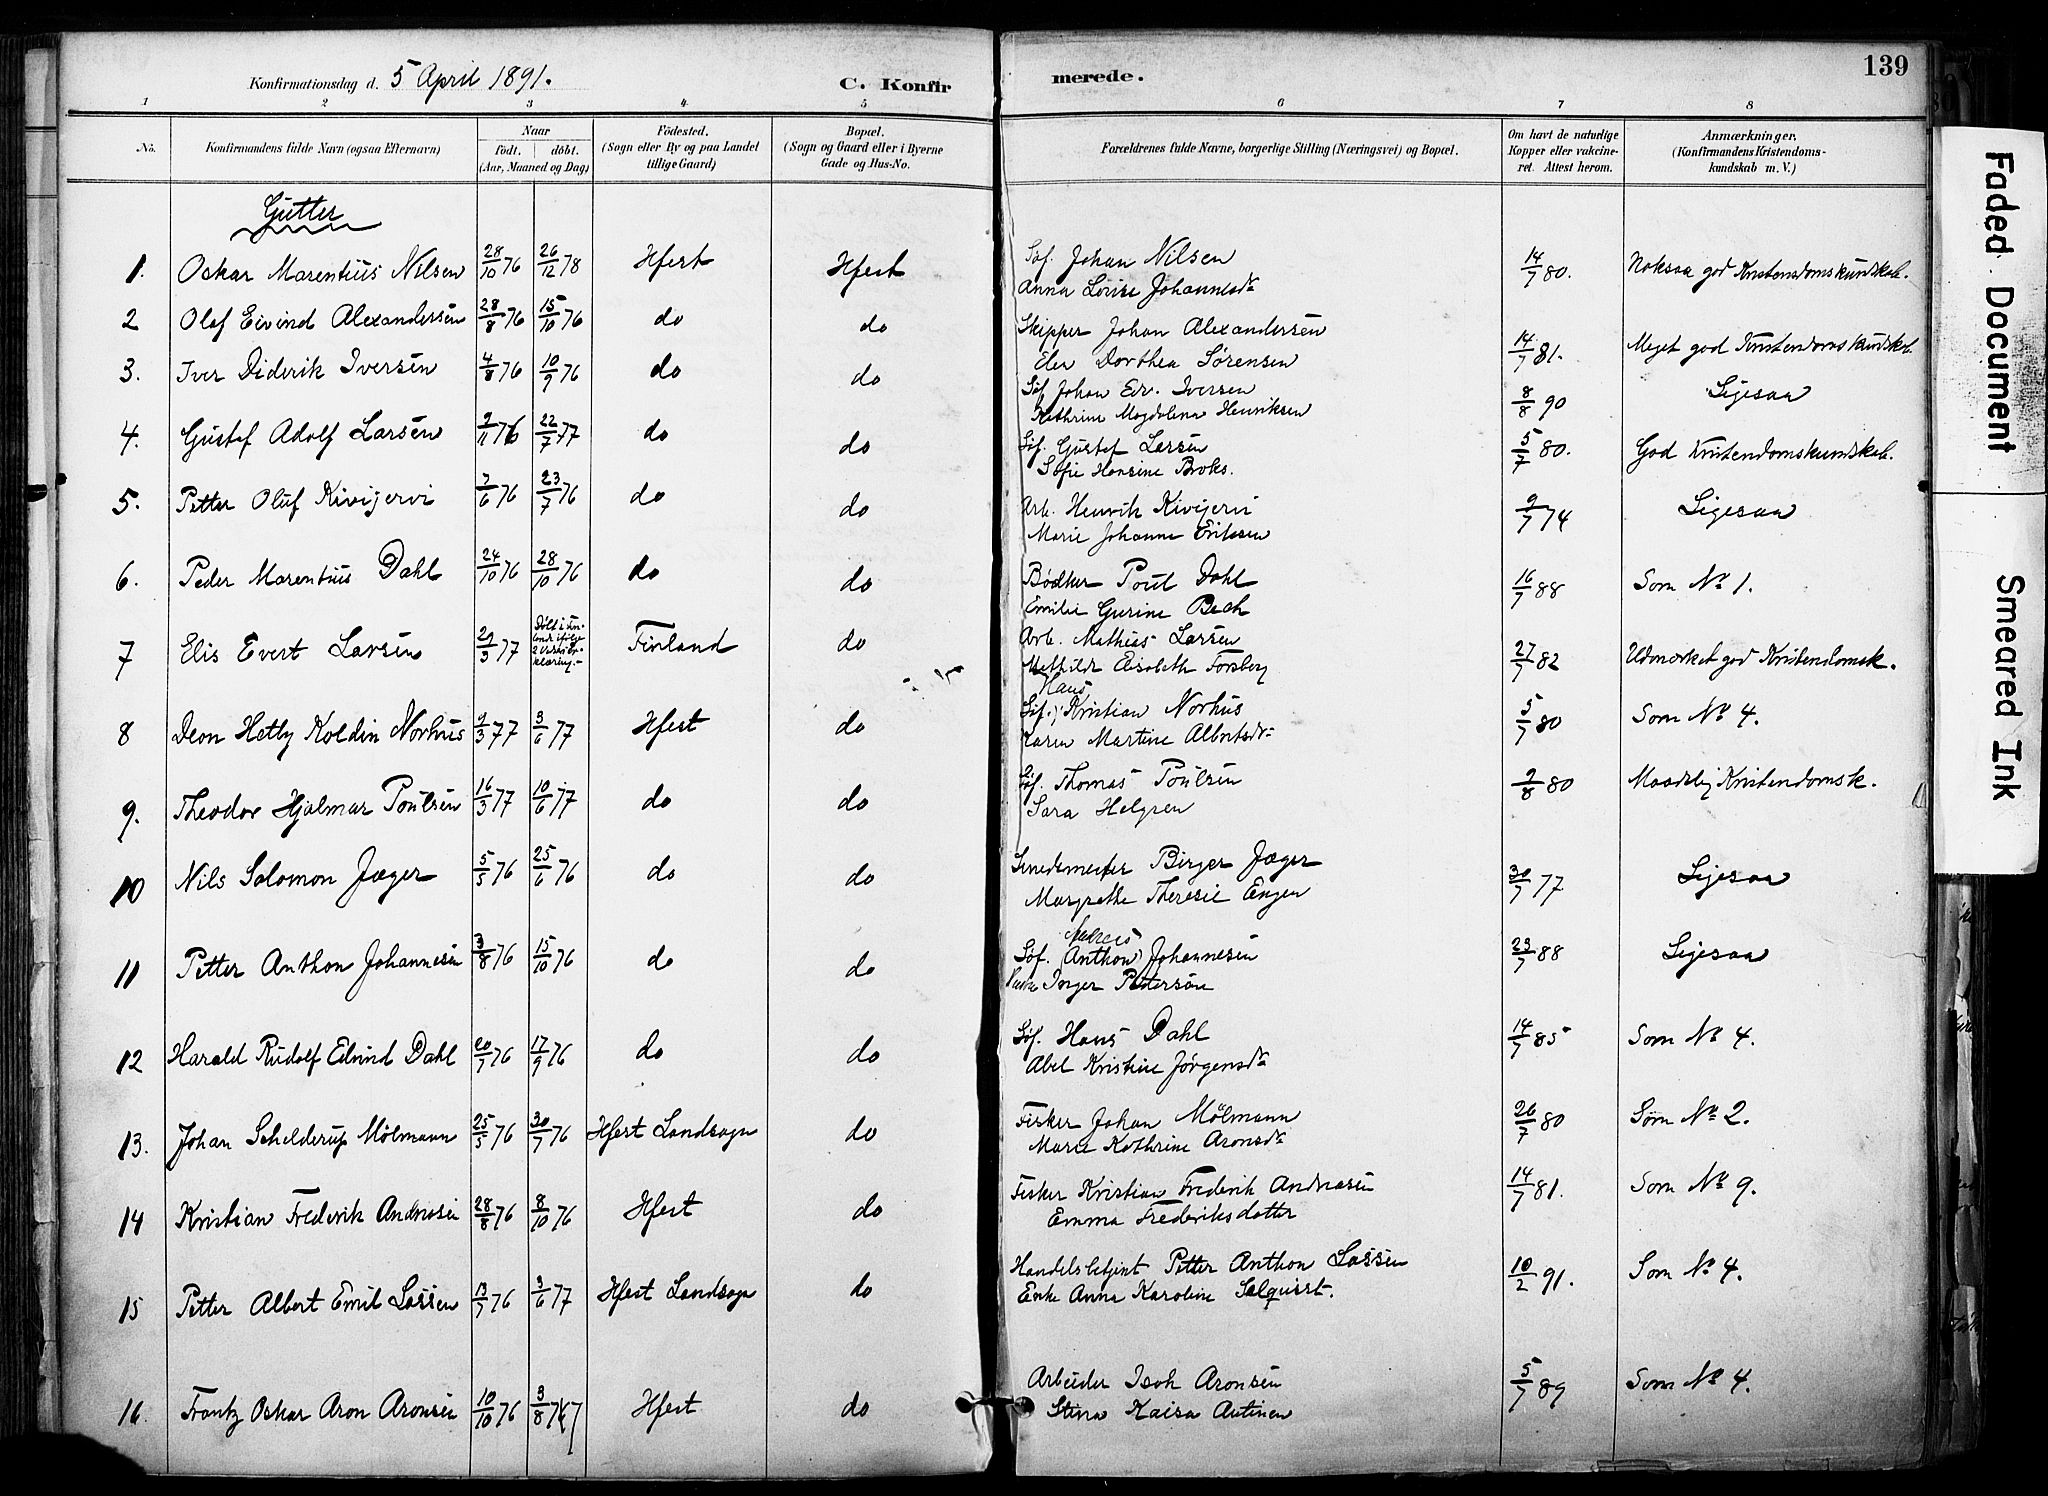 Konfirmationsdag d. 5 April 1891.
C. Konfirmerede.
139
1 2 3 4 5 6 7 8
No.
Konfirmandens fulde Navn (ogsaa Efternavn)
Naar
født. døbt.
(Aar, Maaned og Dag)
Fødested.
(Sogn eller By og paa Landet
tillige Gaard)
Bopæl.
(Sogn og Gaard eller i Byerne
Gade og Hus-No.
Forældrenes fulde Navne, borgerlige Stilling (Næringsvei) og Bopæl.
Om havt de naturlige
Kopper eller vakcine-
ret. Attest herom.
Anmærkninger.
(Konfirmandens Kristendoms-
kundskab m. V.)
Gutter
1. Oskar Marentius Nilsen 28/10 76 26/12 78 Hfest Hfest Søf. Johan Nilsen 14/7 80. Noksaa god Kristendomskundskab.
Anna Lovise Johannesdr
2 Olaf Eivind Alexandersen 28/8 76 15/10 76 do do Skipper Johan Alexandersen 14/7 81. Meget god Kristendomskundskab.
Elen Dorthea Sørensen
3. Iver Diderik Iversen 4/8 76 10/9 76 do do Søf Johan Edv. Iversen 8/8 90 Ligesaa
Kathrine Magdalena Henriksen
4. Gustaf Adolf Larsen 9/11 76 22/7 77 do do Søf. Gustaf Larsen 5/7 80. God Kristendomskundskab.
Sofie Hansine Broks.
5. Petter Oluf Kivijervi 7/6 76 23/7 76 do do Arb. Henrik Kivijervi 9/7 74 Ligesaa
Marie Johanne Eriksen
6. Peder Marentius Dahl 24/10 76 28/10 76 do do Bødker Poul Dahl 16/7 88 Som No 1.
Emilie Gurine Bech
7 Elis Evert Larsen 29/3 77 Døbt i Fin-
land ifølge
Finland do Arb. Mathias Larsen 27/7 82 Udmærket god Kristendomsk.
Mathilde Elisabeth Forsberg
Hans
8 Deon Hetly Koldin Norhus 9/3 77 3/6 77 Hfest do Søf. Kristian Norhus 5/7 80 Som No 4.
Karen Martine Albrtsdr
9. Theodor Hjalmar Poulsen 16/3 77 10/6 77 do do Søf. Thomas Poulsen 9/8 80 Maadelig Kristendomsk.
Sara Helgren
10 Nils Salomon Jæger 5/5 76 25/6 76 do do Smedemester Birger Jæger 30/7 77 Ligesaa
Margrethe Theresie Engen
11 Petter Anthon Johannesen 3/8 76 15/10 76 do do Søf. (Anthon) Johannesen 23/7 88 Ligesaa
Inger Pedersen
12 Harald Rudolf Edvind Dahl 20/7 76 17/9 76 do do Søf. Hans Dahl 14/7 85 Som No 4.
Abel Kristine Jørgensdr
13. Johan Schelderup Mølmann 25/5 76 30/7 76 Hfest Landsogn do Fisker Johan Mølmann 26/7 80 Som No 2.
Marie Kathrine Aronsdr
14 Kristian Frederik Andreasen 28/8 76 8/10 76 Hfest do Fisker Kristian Frederik Andreasen 14/7 81. Som No 9.
Emma Frederiksdatter
15 Petter Albert Emil Lassen 13/7 76 3/6 77 Hfest Landsogn do Handelsbetjent Petter Anthon Lassen 10/2 91. Som No 4.
Enke Anna Karoline Salquist.
16. Frantz Oskar Aron Aronsen 10/10 76 3/8 77 Hfest do Arbeider Isak Aronsen 5/7 89 Som No 4.
Stina Kaisa Antinen
Faded Document
Smeared Ink